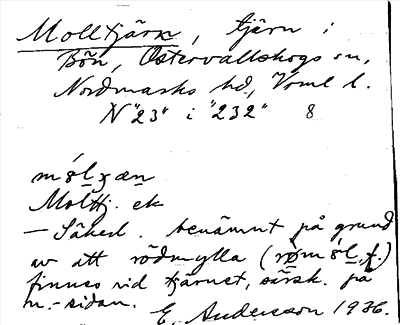 Molltjärn, tjärn i
Bön, Östervallskogs sn,
Nordmarks hd, Vrml l.
N "23" i "232" 8
Molltj. ek
— Säkerl. benämnt på grund
av att rödmylla (
finnes vid tjärnet, särsk. på
n.-sidan.
E. Andersson 1936.